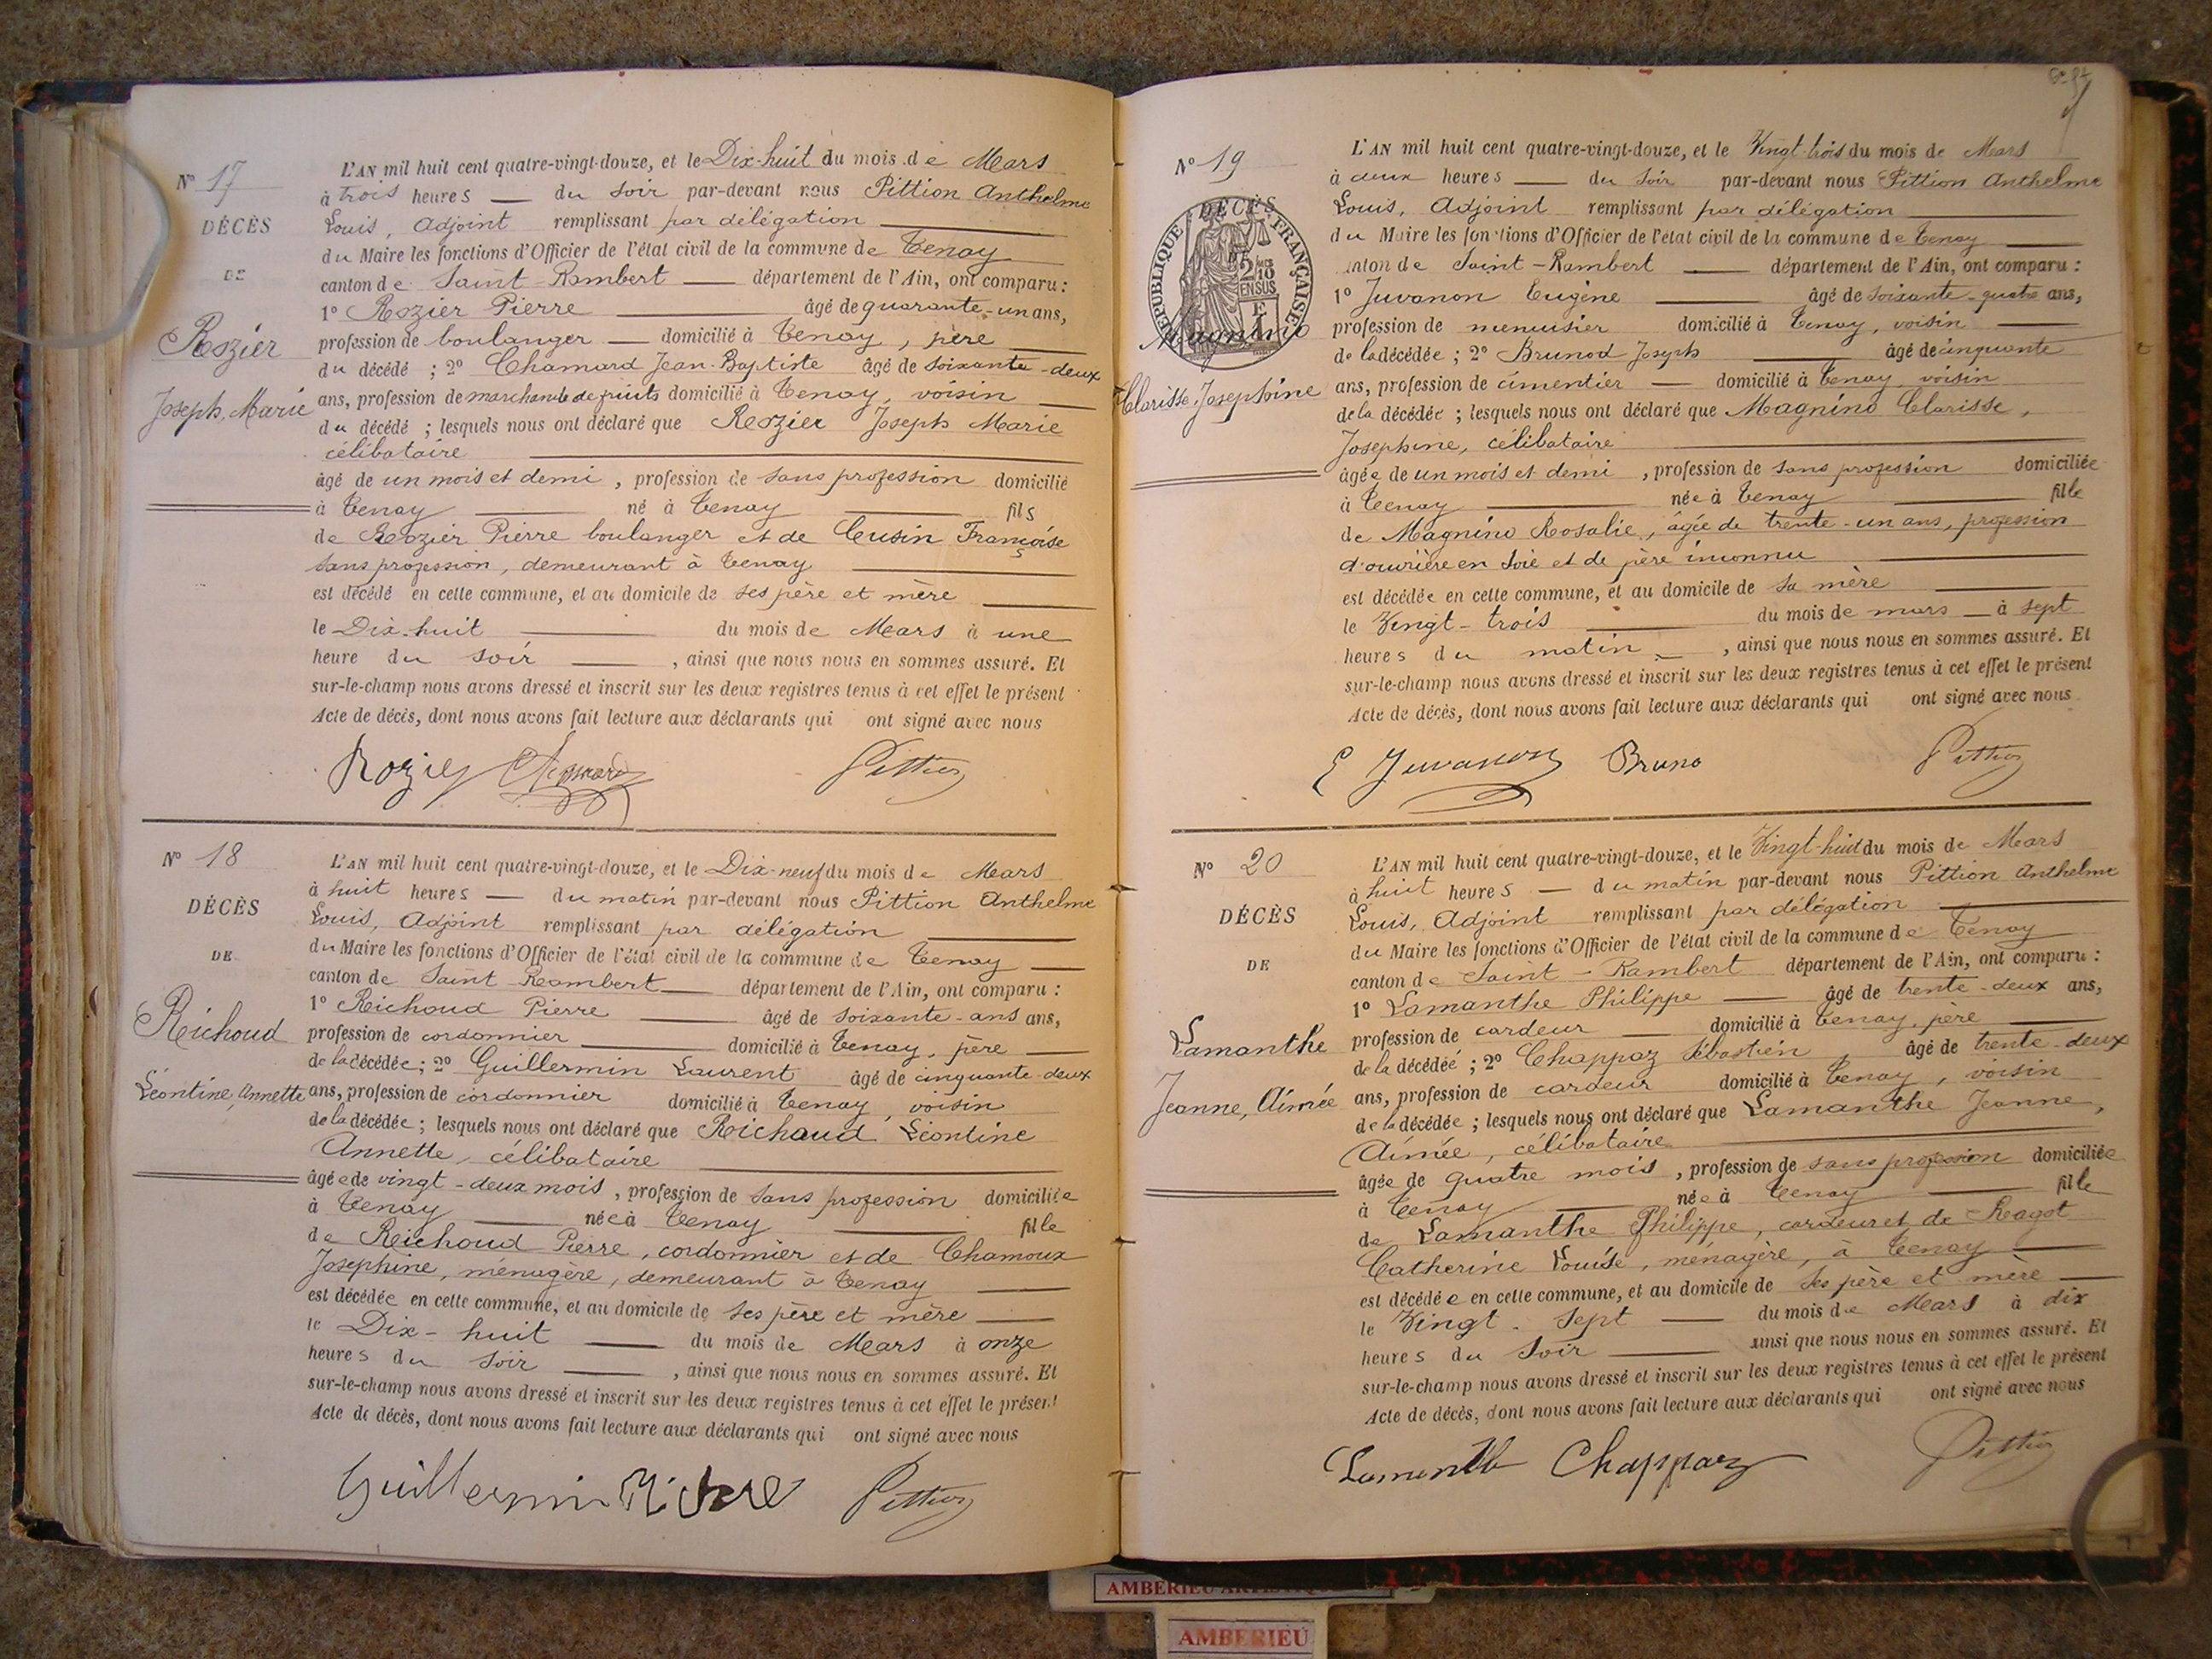 N° 17
DÉCÈS
DE
Rozier
Joseph, Marie
L'AN mil huit cent quatre-vingt-douze, et le Dix-huit du mois de Mars
à trois heures du soir par-devant nous Pittion Anthelme
Louis, Adjoint remplissant par délégation
du Maire les fonctions d'Officier de l'état civil de la commune de Tenay
canton de Saint-Rambert département de l'Ain, ont comparu :
1° Rozier Pierre âgé de quarante-un ans,
profession de boulanger domicilié à Tenay, père
du décédé ; 2° Chamard Jean-Baptiste âgé de soixante-deux
ans, profession de marchand de domicilié à Tenay, voisin
du décédé ; lesquels nous ont déclaré que Rozier Joseph Marie
célibataire
âgé de un mois et demi, profession de sans profession domicilié
à Tenay né à Tenay fils
de Rozier Pierre boulanger et de Cusin Françoise
sans profession, demeurant à Tenay
est décédé en cette commune, et au domicile de ses père et mère
le Dix-huit du mois de Mars à une
heure du soir, ainsi que nous nous en sommes assuré. Et
sur-le-champ nous avons dressé et inscrit sur les deux registres tenus à cet effet le présent
Acte de décès, dont nous avons fait lecture aux déclarants qui ont signé avec nous
Rozier Chamard Pittion
N° 18
DÉCÈS
DE
Richoud
Léontine, Annette
L'AN mil huit cent quatre-vingt-douze, et le Dix-neuf du mois de Mars
à huit heures du matin par-devant nous Pittion Anthelme
Louis, Adjoint remplissant par délégation
du Maire les fonctions d'Officier de l'état civil de la commune de Tenay
canton de Saint-Rambert département de l'Ain, ont comparu :
1° Richoud Pierre âgé de soixante-ans ans,
profession de cordonnier domicilié à Tenay, père
de la décédée ; 2° Guillermin Laurent âgé de cinquante-deux
ans, profession de cordonnier domicilié à Tenay, voisin
de la décédée ; lesquels nous ont déclaré que Richoud Léontine
Annette, célibataire
âgée de vingt-deux mois, profession de sans profession domiciliée
à Tenay née à Tenay fille
de Richoud Pierre, cordonnier et de Chamoux
Joséphine, ménagère, demeurant à Tenay
est décédée en cette commune, et au domicile de ses père et mère
le Dix-huit du mois de Mars à onze
heures du soir, ainsi que nous nous en sommes assuré. Et
sur-le-champ nous avons dressé et inscrit sur les deux registres tenus à cet effet le présent
Acte de décès, dont nous avons fait lecture aux déclarants qui ont signé avec nous
Guillermin Pittion
N° 19
DÉCÈS
RÉPUBLIQUE FRANÇAISE
2/10 EN SUS
Magnino
Clarisse Josephine
L'AN mil huit cent quatre-vingt-douze, et le Vingt-trois du mois de Mars
à deux heures du soir par-devant nous Pittion Anthelme
Louis, Adjoint remplissant par délégation
du Maire les fonctions d'Officier de l'état civil de la commune de Tenay
canton de Saint-Rambert département de l'Ain, ont comparu :
1° Juvanon Eugène âgé de soixante-quatre ans,
profession de menuisier domicilié à Tenay, voisin
de la décédée ; 2° Brunod Joseph âgé de cinquante
ans, profession de cimentier domicilié à Tenay, voisin
de la décédée ; lesquels nous ont déclaré que Magnino Clarisse,
Josephine, célibataire
âgée de un mois et demi, profession de sans profession domiciliée
à Tenay née à Tenay fille
de Magnino Rosalie, âgée de trente-un ans, profession
d'ouvrière en soie et de père inconnu
est décédée en cette commune, et au domicile de sa mère
le Vingt-trois du mois de mars à sept
heures du matin, ainsi que nous nous en sommes assuré. Et
sur-le-champ nous avons dressé et inscrit sur les deux registres tenus à cet effet le présent
Acte de décès, dont nous avons fait lecture aux déclarants qui ont signé avec nous
E Juvanon Bruno Pittion
N° 20
DÉCÈS
DE
Lamanthe
Jeanne, Aimée
L'AN mil huit cent quatre-vingt-douze, et le Vingt-huit du mois de Mars
à huit heures du matin par-devant nous Pittion Anthelme
Louis, Adjoint remplissant par délégation
du Maire les fonctions d'Officier de l'état civil de la commune de Tenay
canton de Saint-Rambert département de l'Ain, ont comparu :
1° Lamanthe Philippe âgé de trente-deux ans,
profession de cardeur domicilié à Tenay, père
de la décédée ; 2° Chappaz Sébastien, âgé de trente-deux
ans, profession de cardeur domicilié à Tenay, voisin
de la décédée ; lesquels nous ont déclaré que Lamanthe Jeanne,
Aimée, célibataire
âgée de quatre mois, profession de sans profession domiciliée
à Tenay née à Tenay fille
de Lamanthe Philippe, cardeur et de Ragot
Catherine Louise, ménagère, à Tenay
est décédée en cette commune, et au domicile de ses père et mère
le Vingt-Sept du mois de Mars à dix
heures du soir ainsi que nous nous en sommes assuré. Et
sur-le-champ nous avons dressé et inscrit sur les deux registres tenus à cet effet le présent
Acte de décès, dont nous avons fait lecture aux déclarants qui ont signé avec nous
Lamanthe Chappaz Pittion
AMBERIEU
AMBERIEU